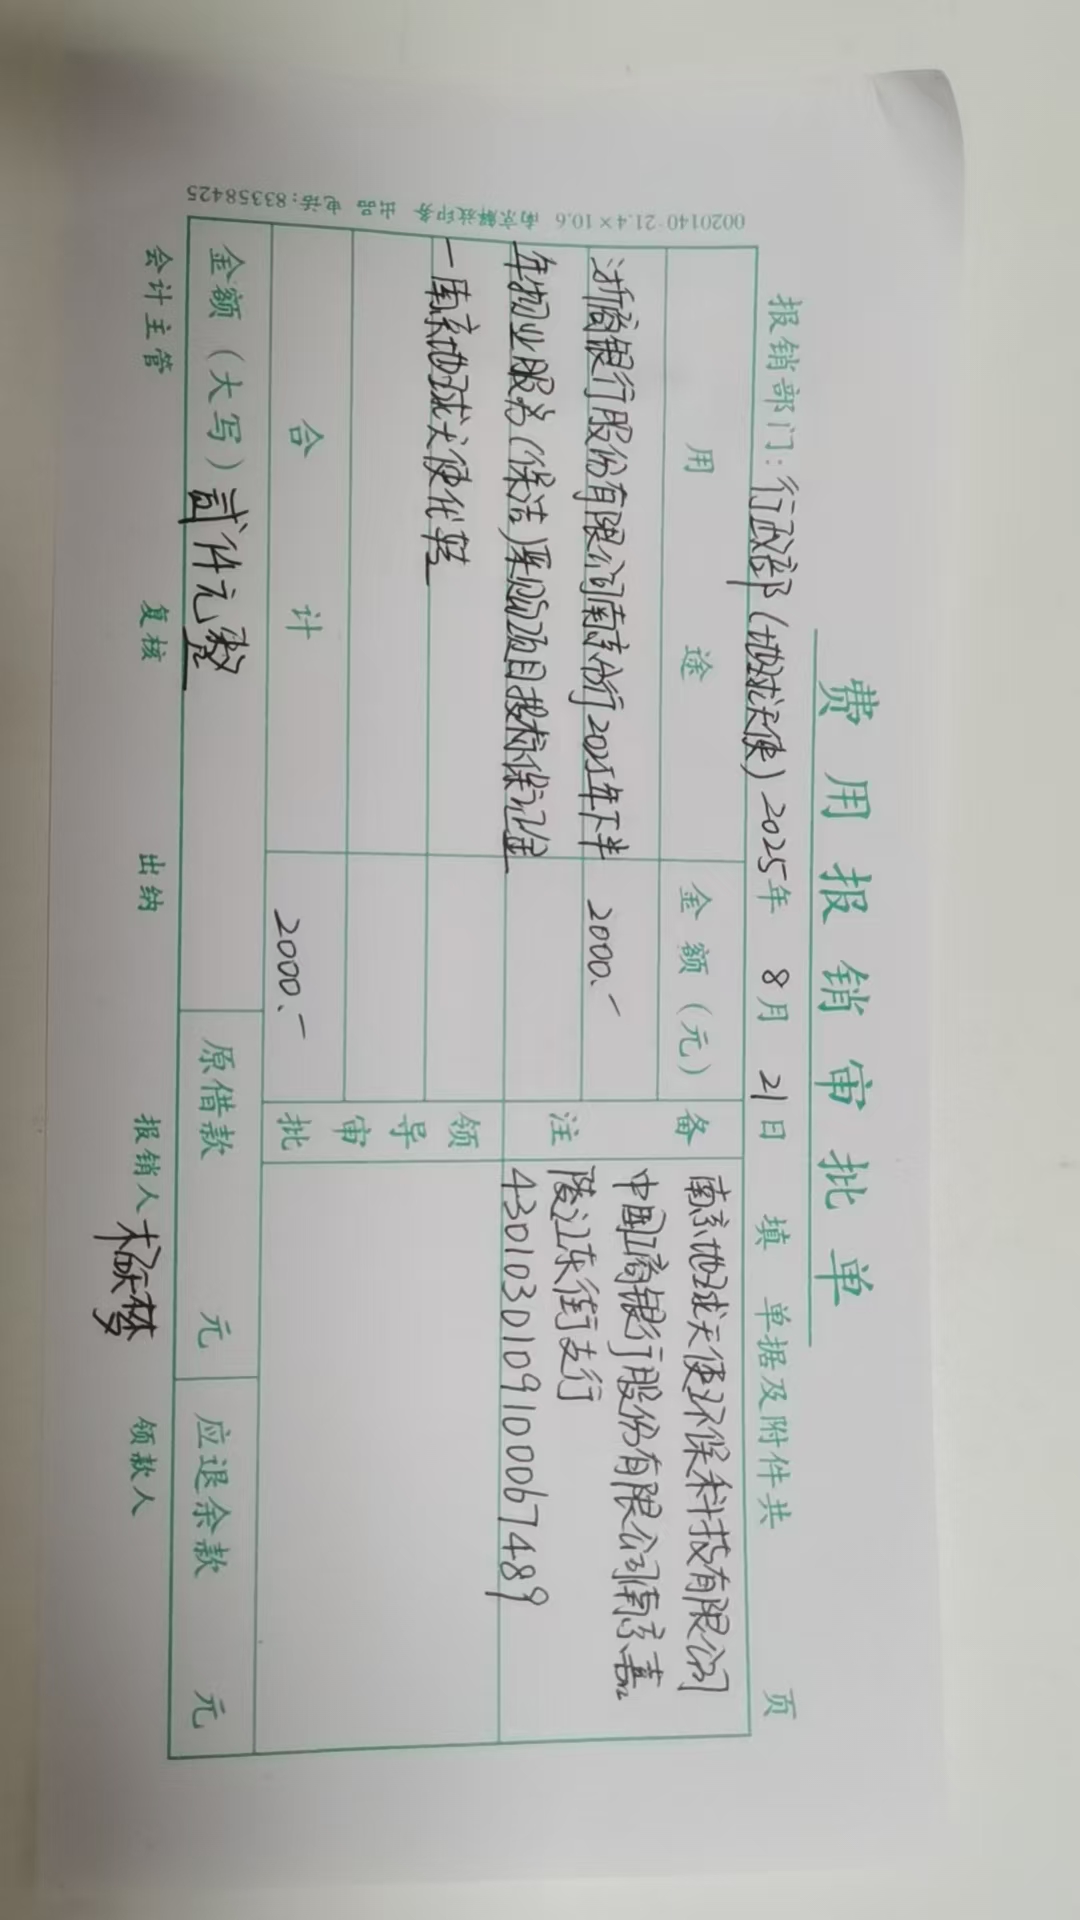 费用报销审批单
报销部门：行政部（地球天使）2025年 8月 21日 填 单据及附件共 页
用途 金额（元） 备注
浙商银行股份有限公司南京分行2025年下半 2000.-
年物业服务（保洁）采购项目投标保证金
—南京地球天使化鞋
南京地球天使环保科技有限公司
中国工商银行股份有限公司南京嘉
陵江东街支行
4301030109100067489
领导审批
合计 2000.-
金额（大写）贰仟元整 原借款 元 应退余款 元
会计主管 复核 出纳 报销人 领款人
0020140-21.4×10.6 南京解放印务 出品 电话:83358425